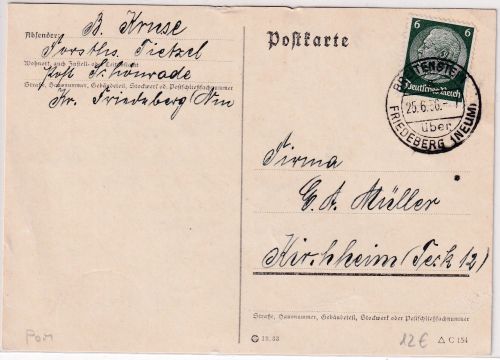 Absender:
B. Kruse
Forsths. Tietzel
Wohnort, auch Zustell- od. Leitpostamt
Post Schönrade
Straße, Hausnummer, Gebäudeteil, Stockwerk od. Postschließfachnummer
Kr. Friedeberg (Nm
Postkarte
6 6
Deutsches Reich
25.6.36.
über
FRIEDEBERG (NEUM)
Firma
G. A. Müller
Kirchheim (Teck 12)
Straße, Hausnummer, Gebäudeteil, Stockwerk oder Postschließfachnummer
Pom
12€
C 154